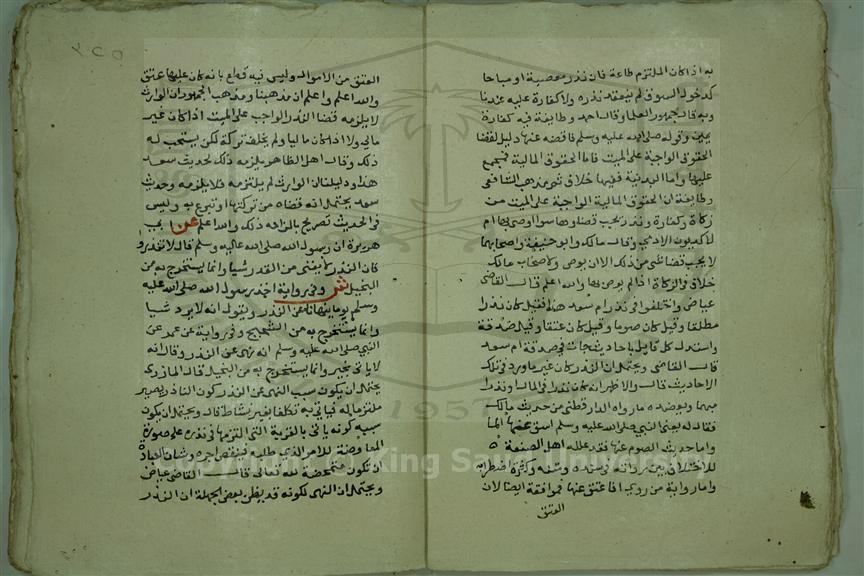 به اذا كان الملتزم طاعة فان نذر معصية او مباحا
كدخول السوق لم ينعقد نذره ولا كفارة عليه عندنا
وبه قال جمهور العلما وقال احمد وطايفة فيه كفارة
يمين وقوله صلى الله عليه وسلم فاقضه عنها دليل لقضا
الحقوق الواجبة على الميت فاما الحقوق المالية فمجمع
عليها واما البدنية ففيها خلاف ثم مذهب الشافعي
وطايفة ان الحقوق المالية الواجبة على الميت من
زكاة وكفارة ونذر يجب قضاوها سوا اوصى بها ام
لا كديون الادمي وقال مالك وابو حنيفة واصحابهما
لا يجب قضا شي من ذلك الا ان يوصى به ولاصحاب مالك
خلاف في الزكاة اذا لم يوص بها والله اعلم قال القاضي
عياض واختلفوا في نذر ام سعد هذا فقيل كان نذرا
مطلقا وقيل كان صوما وقيل كان عتقا وقيل صدقة
واستدل كل قايل باحاديث جات في صدقة ام سعد
قال القاضي ويحتمل ان النذر كان غير ما ورد في تلك
الاحاديث قال والاظهر انه كان نذرا في المال او نذرا
مبهما ويعضده ما رواه الدارقطني من حديث مالك
فقال له يعني النبي صلى الله عليه وسلم اسق عنها الما
واما حديث الصوم عنها فقد علله اهل الصنعة
للاختلاف بين رواته وسنده ومتنه وكثرة اضطرابه
واما رواية من روى افاعتق عنها فموافقة ايضا لان
العتق
٢٣٥
العتق من الاموال وليس فيه قطع بانه كان عليها عتق
والله اعلم واعلم ان مذهبنا ومذهب الجمهور ان الوارث
لا يلزمه قضا النذر الواجب على الميت اذا كان غير
مالي ولا اذا كان ماليا ولم يخلف تركة لكن يستحب له
ذلك وقال اهل الظاهر يلزمه ذلك لحديث سعد
هذا ودليلنا ان الوارث لم يلتزمه فلا يلزمه وحديث
سعد يحتمل انه قضاه من تركتها او تبرع به وليس
في الحديث تصريح بالزامه ذلك والله اعلم عن ابي
هريرة ان رسول الله صلى الله عليه وسلم قال لا تنذروا
فان النذر لا يغني من القدر شيا وانما يستخرج به من
البخيل ش وفي رواية اخذ رسول الله صلى الله عليه
وسلم يوما ينهانا عن النذر ويقول انه لا يرد شيا
وانما يستخرج به من الشحيح وفي رواية عن عمر عن
النبي صلى الله عليه وسلم انه نهى عن النذر وقال انه
لا ياتي بخير وانما يستخرج به من البخيل قال المازري
يحتمل ان يكون سبب النهي عن النذر كون الناذر يصير
ملتزما له فياتي به تكلفا بغير نشاط قال ويحتمل ان يكون
سببه كونه ياتي بالقربة التي التزمها في نذره على صورة
المعاوضة للامر الذي طلبه فينقص اجره وشان العبادة
ان تكون متمحضة لله تعالى قال القاضي عياض
ويحتمل ان النهي لكونه قد يظن بعض الجهلة ان النذر